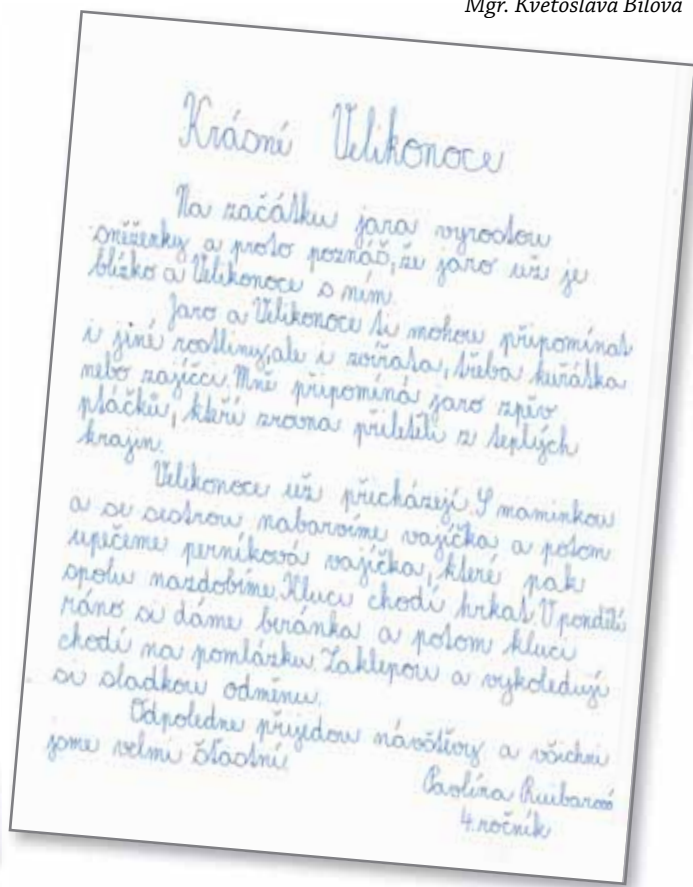 Mgr. Květoslava Bílová
Krásné Velikonoce
Na začátku jara vyrostou
sněženky a proto poznáš, že jaro už je
blízko a Velikonoce s ním.
Jaro a Velikonoce ti mohou připomínat
i jiné rostliny, ale i zvířata, třeba kuřátka
nebo zajíčci. Mně připomíná jaro zpěv
ptáčků, kteří zrovna přiletěli z teplých
krajin.
Velikonoce už přicházejí. S maminkou
a se sestrou nabarvíme vajíčka a potom
upečeme perníková vajíčka, které pak
spolu nazdobíme. Kluci chodí hrkat. V pondělí
ráno si dáme beránka a potom kluci
chodí na pomlázku. Zaklepou a vykoledují
si sladkou odměnu.
Odpoledne přijedou návštěvy a všichni
jsme velmi šťastní.
Pavlína Ruibarová
4. ročník